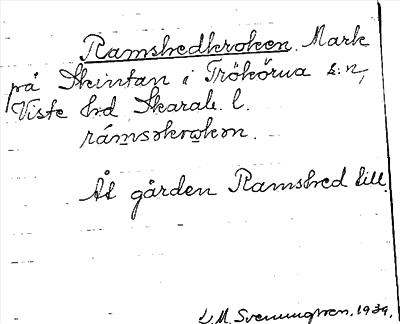 Ramshedkroken. Mark
på Skintan i Trökörna s:n,
Viste hd Skarab. l.
rámsəkrokən.
Åt gården Ramshed till.
L.M. Svenungsson. 1939.